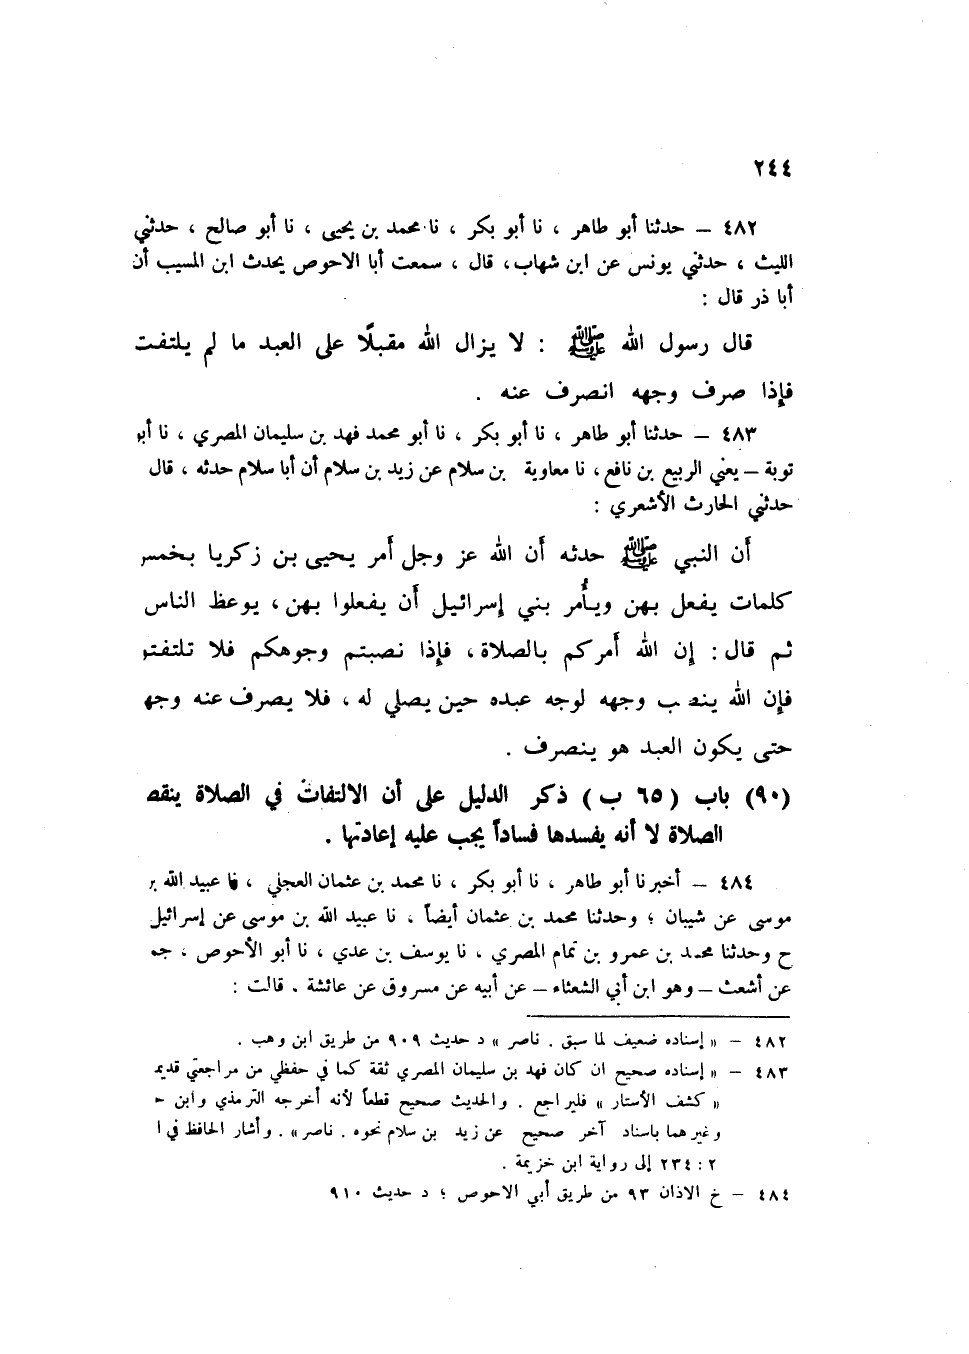 ٢٤٤
٤٨٢ – حدثنا أبو طاهر ، نا أبو بكر ، نا محمد بن يحيى ، نا أبو صالح ، حدثني
الليث ، حدثني يونس عن ابن شهاب، قال ، سمعت أبا الاحوص يحدث ابن المسيب أن
أبا ذر قال :
قال رسول الله ﷺ : لا يزال الله مقبلًا على العبد ما لم يلتفت
فإذا صرف وجهه انصرف عنه .
٤٨٣ – حدثنا أبو طاهر ، نا أبو بكر ، نا أبو محمد فهد بن سليمان المصري ، نا أبو
توبة – يعني الربيع بن نافع، نا معاوية بن سلام عن زيد بن سلام أن أبا سلام حدثه ، قال
حدثني الحارث الأشعري :
أن النبي ﷺ حدثه أن الله عز وجل أمر يحيى بن زكريا بخمس
كلمات يفعل بهن ويأمر بني إسرائيل أن يفعلوا بهن، يوعظ الناس
ثم قال : إن الله أمركم بالصلاة، فإذا نصبتم وجوهكم فلا تلتفتو
فإن الله ينصب وجهه لوجه عبده حين يصلي له، فلا يصرف عنه وجه
حتى يكون العبد هو ينصرف .
(٩٠) باب (٦٥ ب) ذكر الدليل على أن الالتفات في الصلاة ينقص
الصلاة لا أنه يفسدها فساداً يجب عليه إعادتها .
٤٨٤ – أخبرنا أبو طاهر ، نا أبو بكر ، نا محمد بن عثمان العجلي ، نا عبيد الله بن
موسى عن شيبان ؛ وحدثنا محمد بن عثمان أيضاً ، نا عبيد الله بن موسى عن إسرائيل
ح وحدثنا محمد بن عمرو بن تمام المصري ، نا يوسف بن عدي ، نا أبو الأحوص ،
عن أشعث – وهو ابن أبي الشعثاء – عن أبيه عن مسروق عن عائشة . قالت :
٤٨٢ – « إسناده ضعيف لما سبق . ناصر » د حديث ٩٠٩ من طريق ابن وهب .
٤٨٣ – « إسناده صحيح ان كان فهد بن سليمان المصري ثقة كما في حفظي من مراجعتي قديم
« كشف الأستار » فليراجع . والحديث صحيح قطعاً لأنه أخرجه الترمذي وابن
وغيرهما باسناد آخر صحيح عن زيد بن سلام نحوه . ناصر » . وأشار الحافظ في
٢ : ٢٣٤ إلى رواية ابن خزيمة .
٤٨٤ – خ الاذان ٩٣ من طريق أبي الاحوص ؛ د حديث ٩١٠